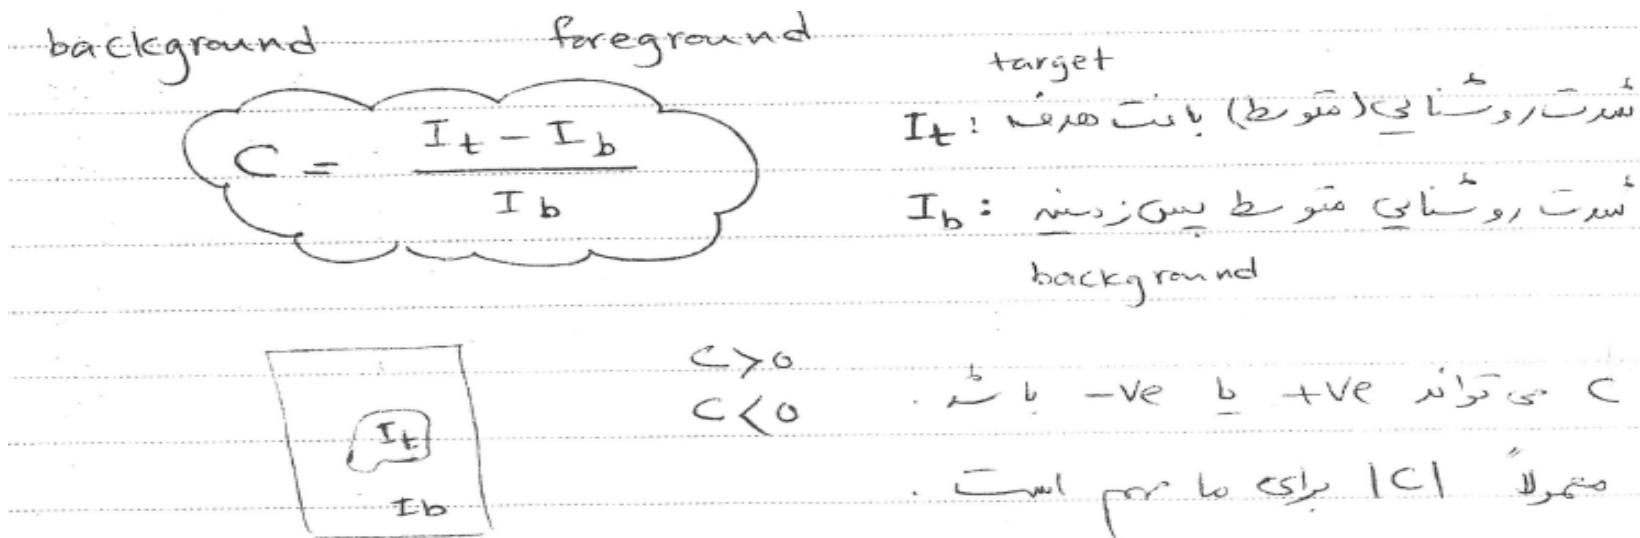 background foreground
target
I_t : شدت روشنایی (متوسط) بافت هدف
C = (I_t - I_b) / I_b
I_b : شدت روشنایی متوسط پس زمینه
background
C>0
C می تواند +ve یا -ve باشد.
C<0
I_t
معمولاً |C| برای ما مهم است.
I_b